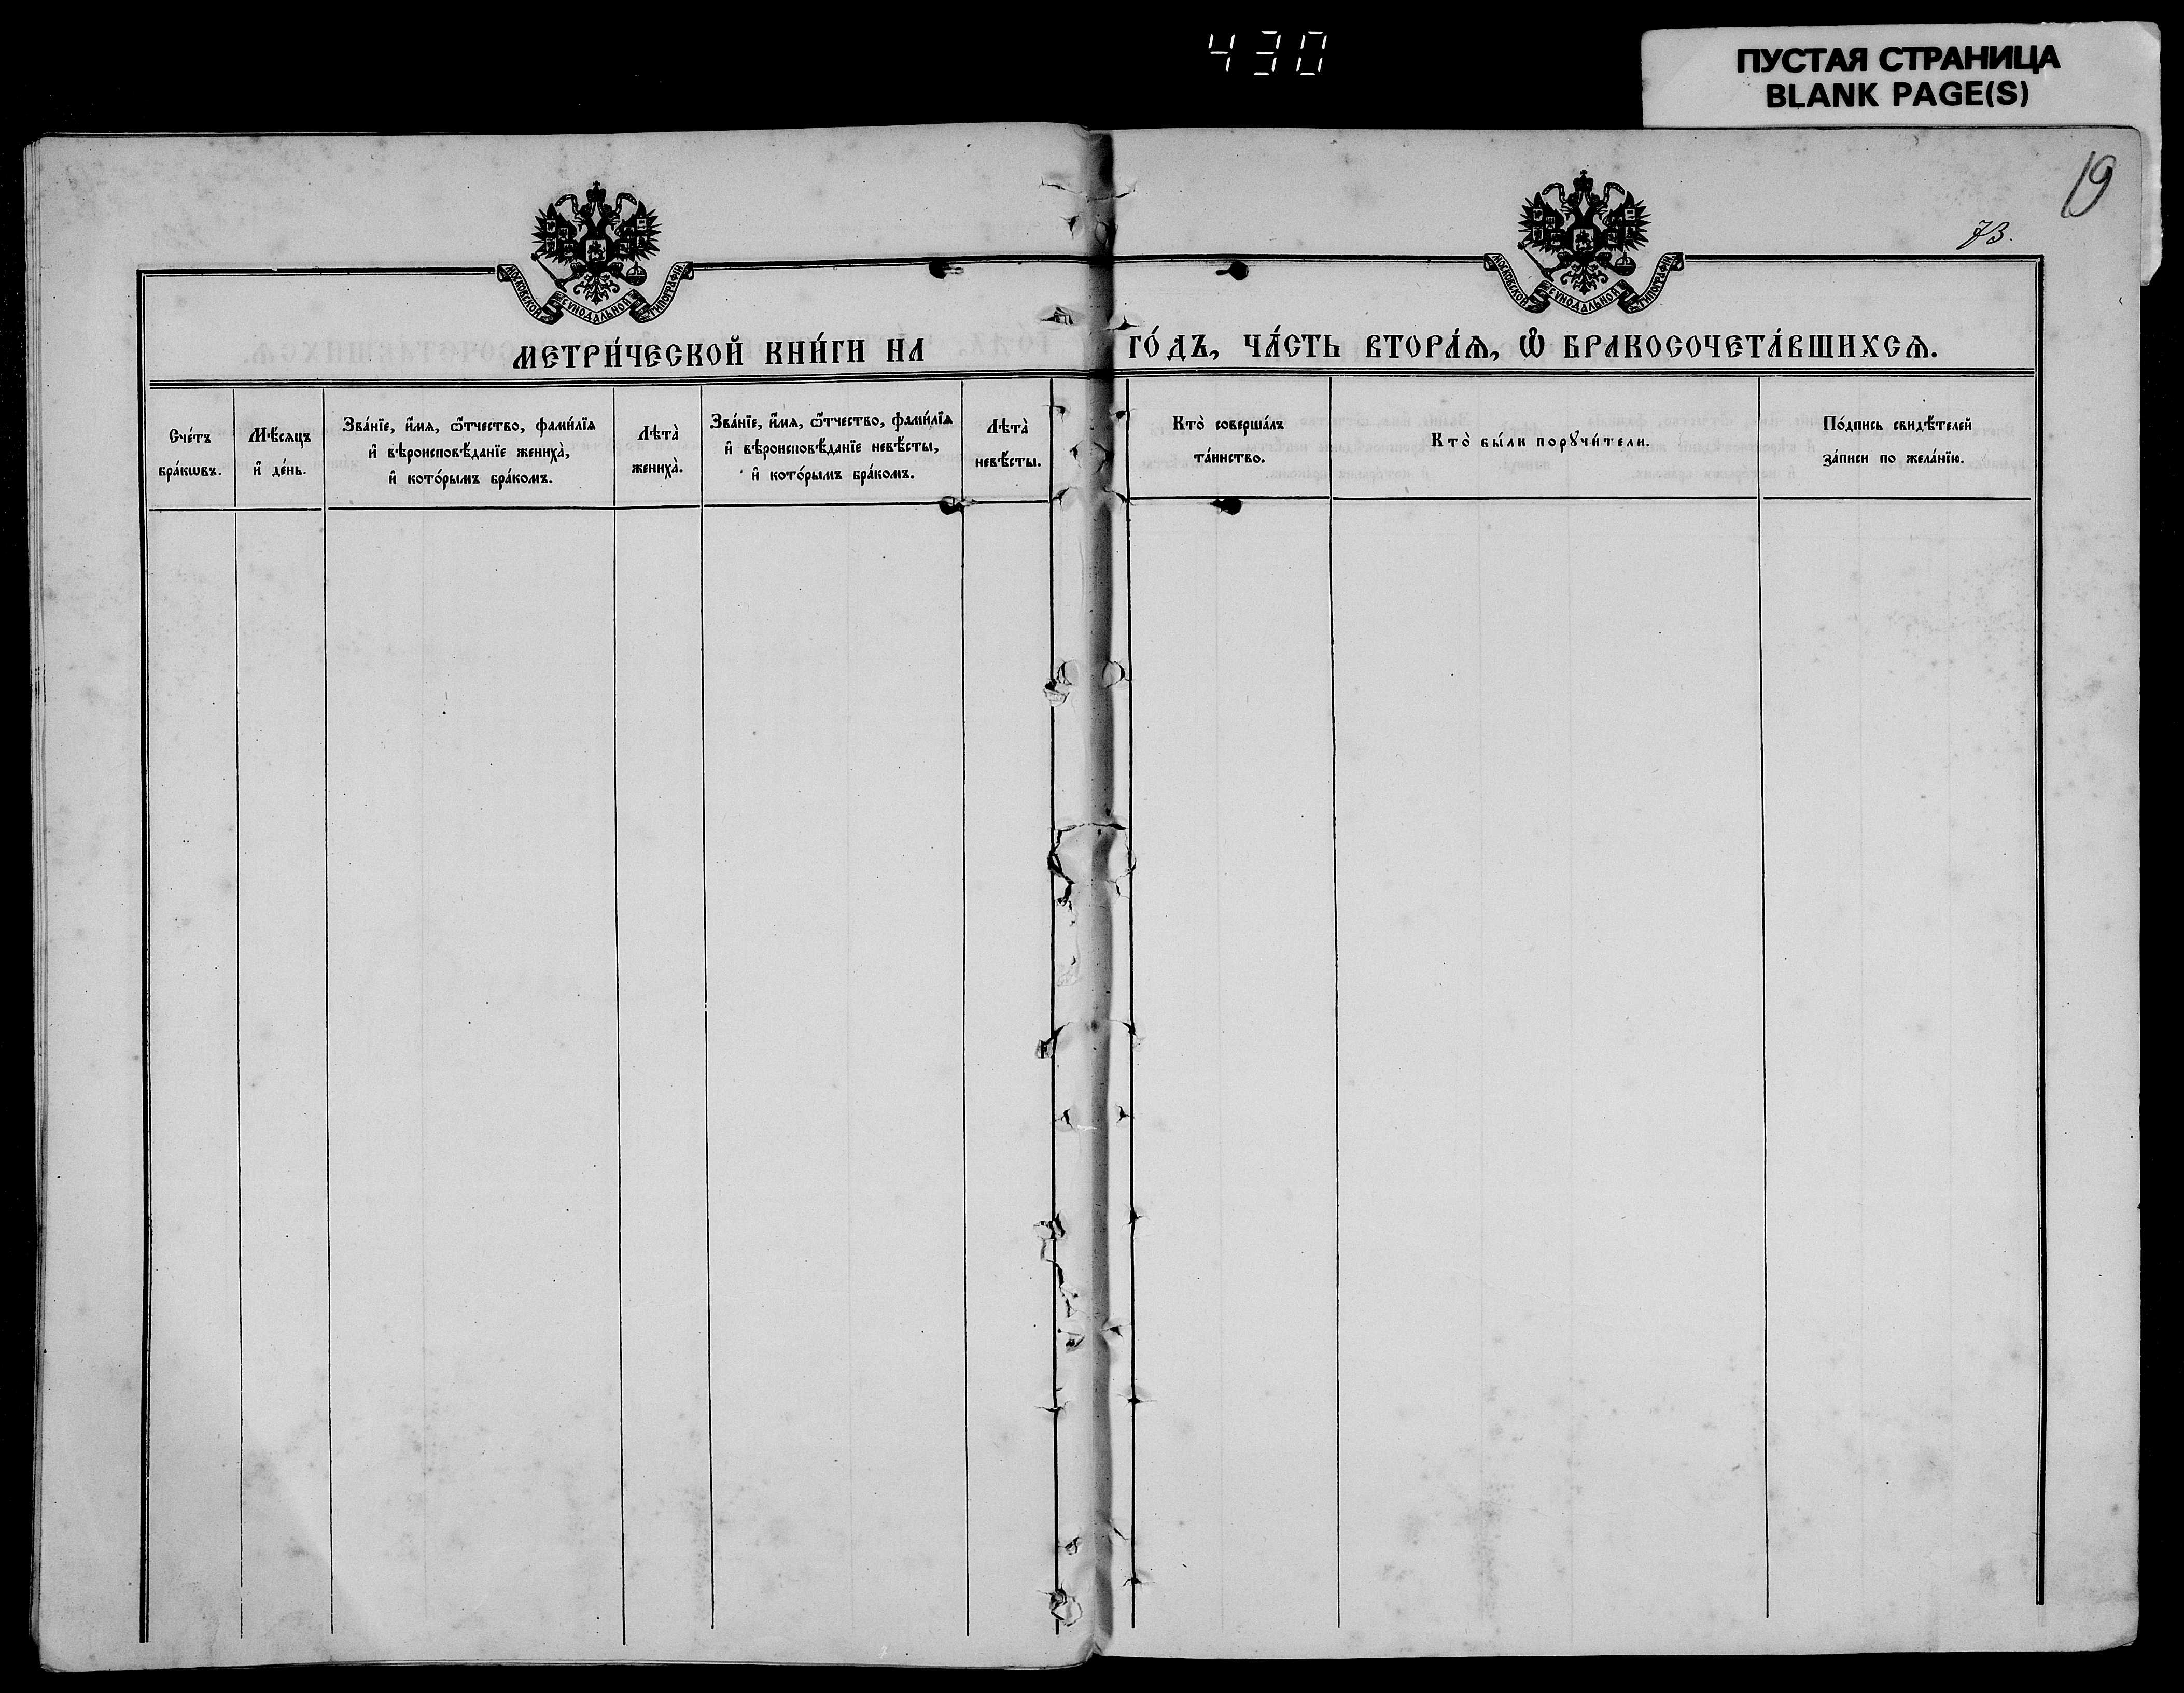 430
ПУСТАЯ СТРАНИЦА
BLANK PAGE(S)
19
73.
МОСКОВСКОЙ СѴНОДАЛЬНОЙ ТИПОГРАФІИ
МОСКОВСКОЙ СѴНОДАЛЬНОЙ ТИПОГРАФІИ
МЕТРИ́ЧЕСКОЙ КНИ́ГИ НА ГО́ДЪ, ЧА́СТЬ ВТОРА́Ѧ, Ѽ БРАКОСОЧЕТА́ВШИХСѦ.
Сче́тъ
бра́кѡвъ.
Мѣ́сѧцъ
и҆ де́нь.
Зва́нїе, и҆́мѧ, ѻ҆́тчество, фами́лїѧ
и҆ вѣроисповѣ́данїе жениха̀,
и҆ кото́рымъ бра́комъ.
Лѣта̀
жениха̀.
Зва́нїе, и҆́мѧ, ѻ҆́тчество, фами́лїѧ
и҆ вѣроисповѣ́данїе невѣ́сты,
и҆ кото́рымъ бра́комъ.
Лѣта̀
невѣ́сты.
Кто̀ соверша́лъ
та́инство.
Кто̀ бы́ли порꙋчи́тели.
По́дпись свидѣ́телей
за́писи по жела́нїю.